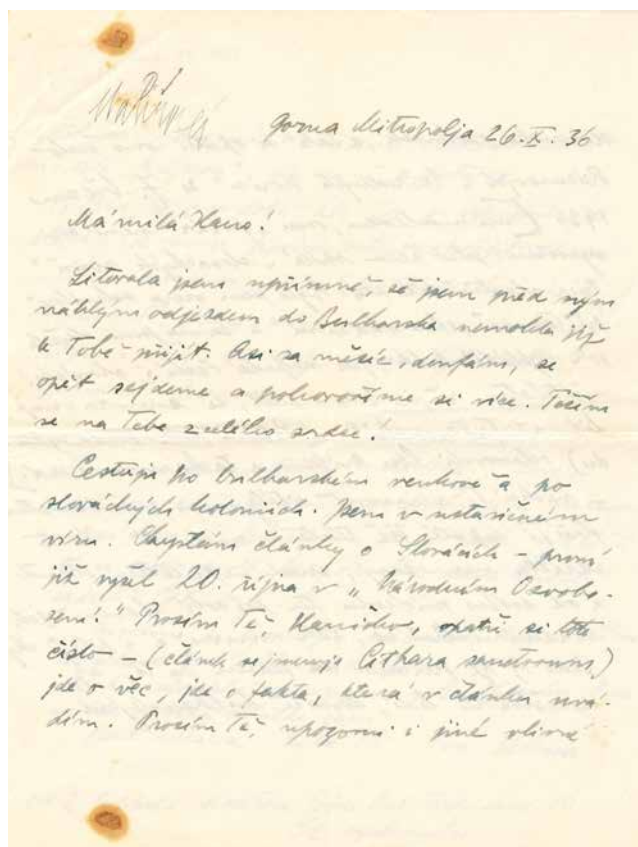 Gorna Mitropolja 26.X.36
Má milá Hano!
Litovala jsem upřímně, že jsem před svým
náhlým odjezdem do Bulharska nemohla již
k Tobě přijít. Asi za měsíc, doufám, se
opět sejdeme a pohovoříme si více. Těším
se na Tebe z celého srdce.
Cestuji po bulharském venkově a po
slováckých koloniích. Jsem v ustavičném
víru. Chystám články o Slovácích – první
již vyšel 20. října v „Národním Osvobo-
zení!" Prosím Tě, Haničko, opatři si toto
číslo – (článek se jmenuje Cithara sanctorum)
jde o věc, jde o fakta, která v článku uvá-
dím. Prosím Tě, upozorni i jiné vlivné